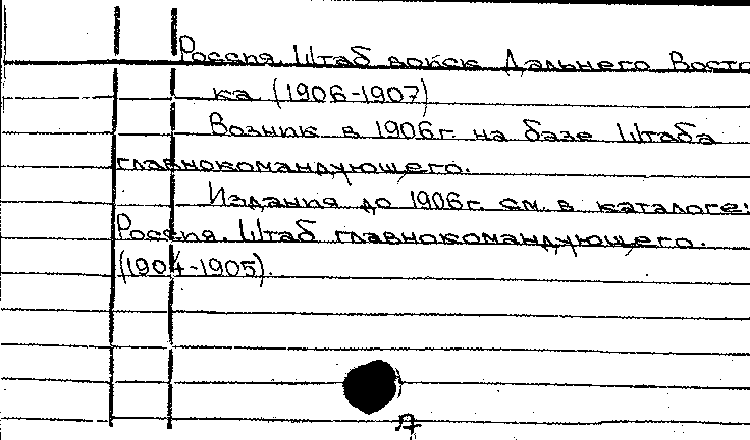 Россия. Штаб войск Дальнего Восто
ка (1906-1907)
Возник в 1906г. на базе Штаба
главнокомандующего.
Издания до 1906г. см. в каталоге:
Россия. Штаб главнокомандующего.
(1904-1905).